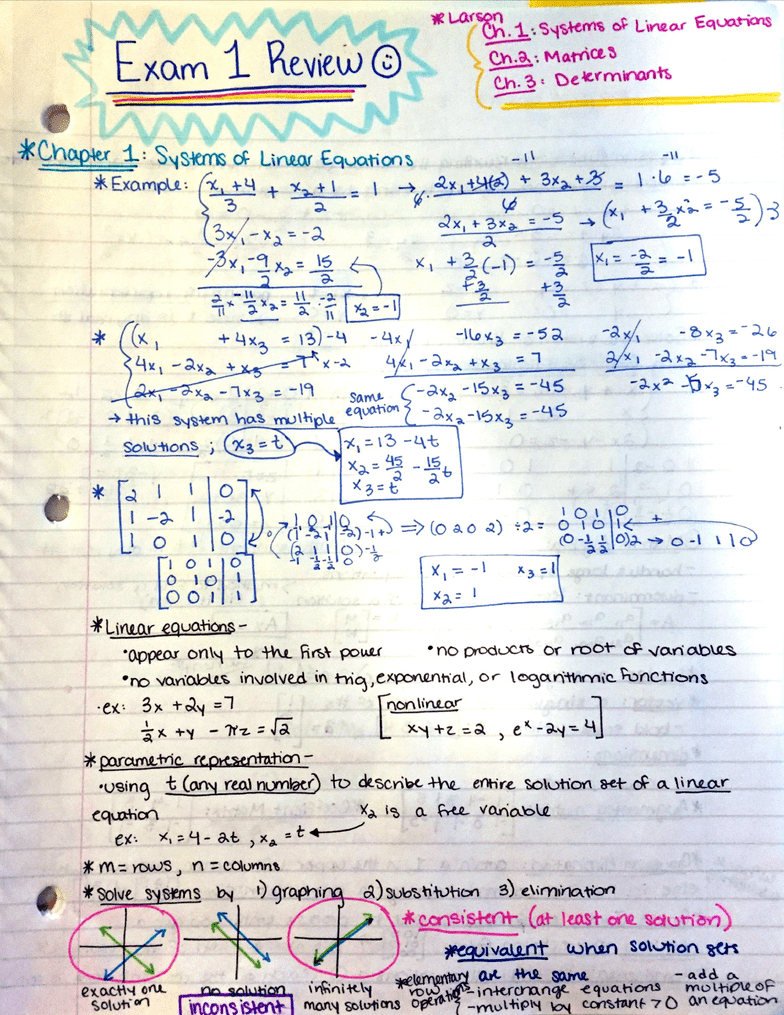 Exam 1 Review
* Larson
Ch. 1: Systems of Linear Equations
Ch. 2: Matrices
Ch. 3: Determinants
*Chapter 1: Systems of Linear Equations
* Example: (x₁+4)/3 + (x₂+1)/2 = 1 → 6· (2x₁+4(2) + 3x₂+3)/6 = 1·6 = -5
-11 -11
3x₁ - x₂ = -2
(2x₁+3x₂ = -5)/2 → (x₁ + 3/2 x₂ = -5/2) 3
-3x₁ - 9/2 x₂ = 15/2
x₁ + 3/2(-1) = -5/2
x₁ = -2/2 = -1
2/11 x -11/2 x₂ = 11/2 · -2/11
x₂ = -1
+3/2 +3/2
* (x₁ + 4x₃ = 13)-4
-4x₁ -16x₃ = -52
-2x₁ -8x₃ = -26
4x₁ - 2x₂ + x₃ = 7 x-2
4x₁ - 2x₂ + x₃ = 7
2x₁ - 2x₂ - 7x₃ = -19
2x₁ - 2x₂ - 7x₃ = -19
same equation
-2x₂ - 15x₃ = -45
-2x₂ - 15x₃ = -45
→ this system has multiple
solutions; x₃ = t
x₁ = 13 - 4t
x₂ = 45/2 - 15/2 t
x₃ = t
* 2 1 1 | 0
1 -2 1 | -2
1 0 1 | 0
⇒ (0 2 0 2) ÷2 =
1 0 1 | 0
0 1 0 | 1
(0 -1/2 1/2 | 0)2 → 0 -1 1 1 0
1 0 1 | 0
0 1 0 | 1
0 0 1 | 1
x₁ = -1 x₃ = 1
x₂ = 1
* Linear equations -
• appear only to the first power • no products or root of variables
• no variables involved in trig, exponential, or logarithmic functions
• ex: 3x + 2y = 7 [nonlinear
½x + y - πz = √2 xy + z = 2, eˣ - 2y = 4]
* parametric representation -
• using t (any real number) to describe the entire solution set of a linear
equation x₂ is a free variable
ex: x₁ = 4 - 2t, x₂ = t
* m = rows, n = columns
* Solve systems by 1) graphing 2) substitution 3) elimination
* consistent (at least one solution)
* equivalent when solution sets
are the same
exactly one solution
no solution
inconsistent
infinitely many solutions
* elementary row operations
- interchange equations
- multiply by constant > 0
- add a multiple of an equation